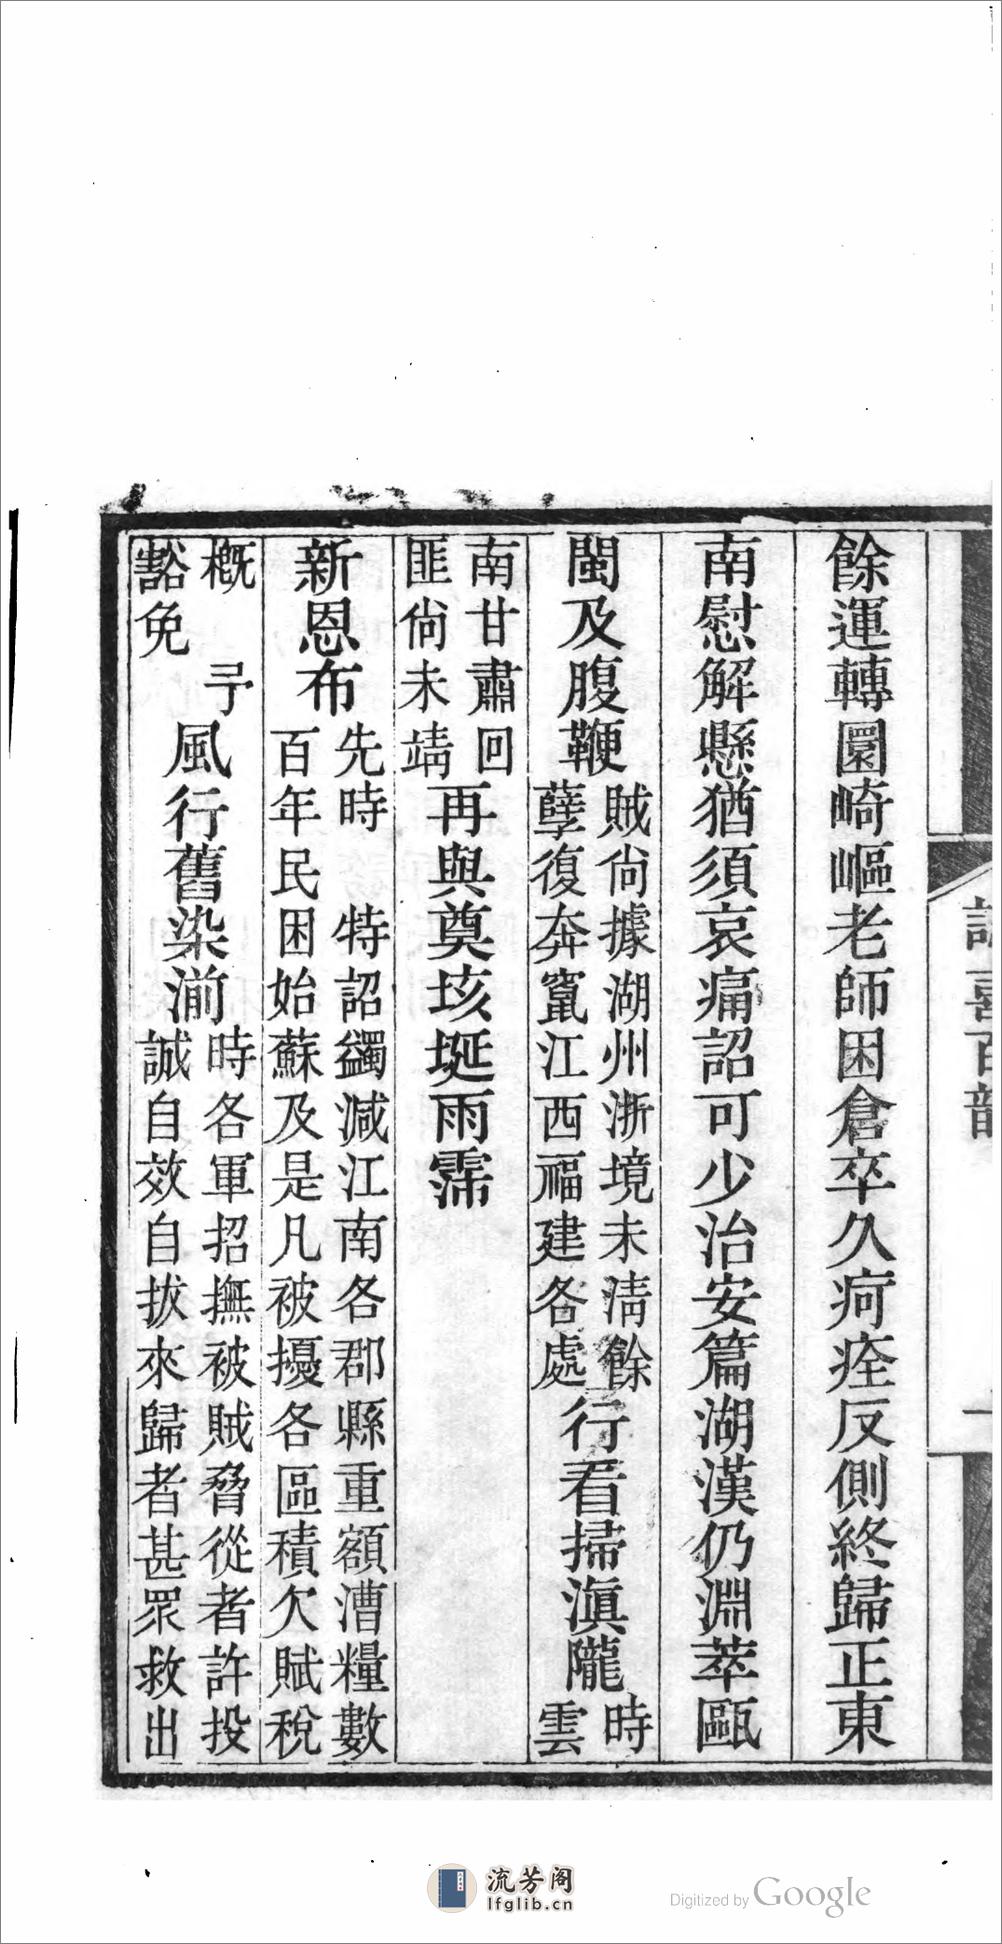 喜百韻
餘運轉圜崎嶇老師困倉卒久疴痊反側終歸正東
南慰解懸猶須哀痛詔可少治安篇湖漢仍淵萃甌
閩及腹鞭
賊尙據湖州浙境未淸餘
孽復奔竄江西福建各處
行看掃滇隴
時
雲
南甘肅回
匪尙未靖
再與奠垓埏雨霈
新恩布
先時 特詔蠲減江南各郡縣重額漕糧數
百年民困始蘇及是凡被擾各區積欠賦稅
概 予
豁免
風行舊染湔
時各軍招撫被賊脅從者許投
誠自效自拔來歸者甚眾救出
流芳阁
lfglib.cn
Digitized by Google